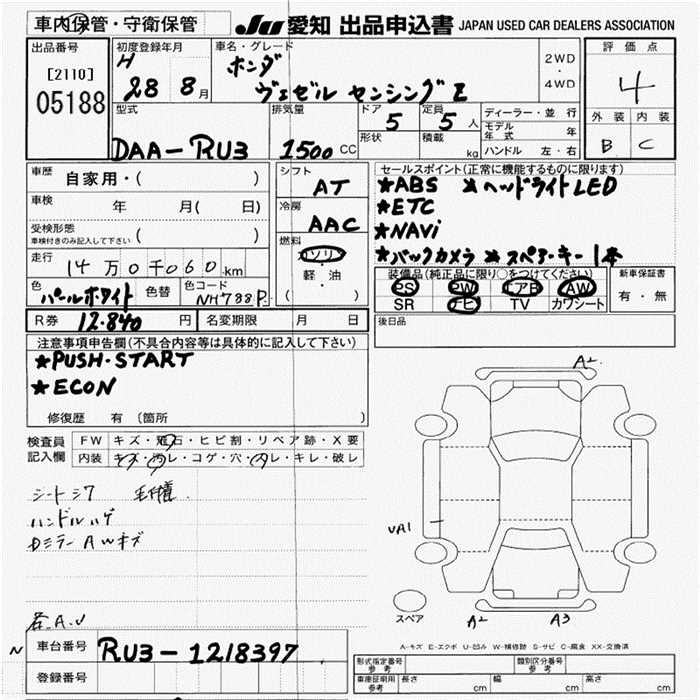 車内保管・守衛保管
JU 愛知 出品申込書 JAPAN USED CAR DEALERS ASSOCIATION
出品番号
[2110]
05188
初度登録年月
H 28 8月
車名・グレード
ホンダ
ヴェゼル センシング Z
2WD
・
4WD
評価点
4
外装 内装
B C
型式
DAA-RU3
排気量
1500 CC
ドア
5
定員
5人
形状
積載
kg
ディーラー・並行
モデル年式 年
ハンドル 左・右
車歴
自家用・( )
車検
年 月( 日)
受検形態
車検付きのみ記入して下さい ( )
走行
14万0千060km
色
パールホワイト
色替
色コード
NH788P
シフト
AT
冷房
AAC
燃料
ガソリン
軽・油
( )
セールスポイント(正常に機能するものに限ります)
★ABS ※ヘッドライトLED
★ETC
★NAVi
★バックカメラ ※スペアーキー1本
装備品(純正品に限り○をつけてください)
PS PW エアB AW
SR ナビ TV カワシート
新車保証書
有・無
R券 12.840円
名変期限 月 日
後日品
注意事項申告欄(不具合内容等は具体的に記入して下さい)
★PUSH・START
★ECON
修復歴 有 (箇所 )
検査員
記入欄
FW キズ・飛石・ヒビ割・リペア跡・X要
内装 キズ・汚レ・コゲ・穴・ハレ・キレ・破レ
シートシワ
ハンドルハゲ
Dミラー AWキズ
A2
UA1
スペア
A2 A3
A-キズ E-エクボ U-凹み W-補修跡 S-サビ C-腐食 XX-交換済
車台番号
RU3-1218397
登録番号
N
形式指定番号
参考
類別区分番号
参考
車庫証明用
参考
長さ cm
幅 cm
高さ cm